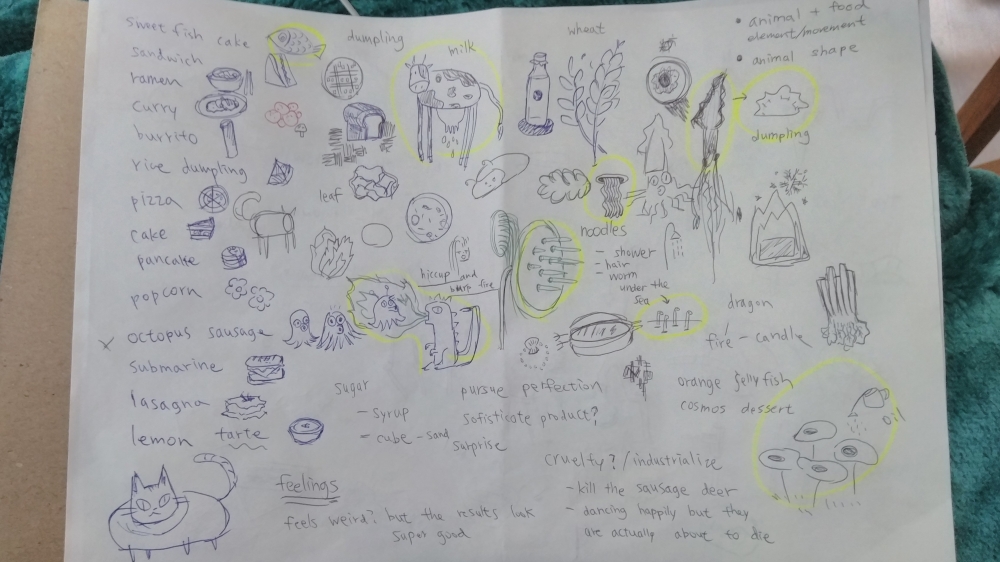 sweet fish cake
sandwich
ramen
curry
burrito
rice dumpling
pizza
cake
pancake
popcorn
octopus sausage
submarine
lasagna
lemon tarte
dumpling
milk
leaf
hiccup and
burp fire
wheat
• animal + food
element/movement
• animal shape
dumpling
noodles
- shower
- hair
- worm
under the
sea
dragon
fire - candle
sugar
- syrup
- cube - sand
pursue perfection
sofisticate product?
surprise
orange jellyfish
cosmos dessert
oil
feelings
feels weird? but the results look
super good
cruelty? / industrialize
- kill the sausage deer
- dancing happily but they
are actually about to die